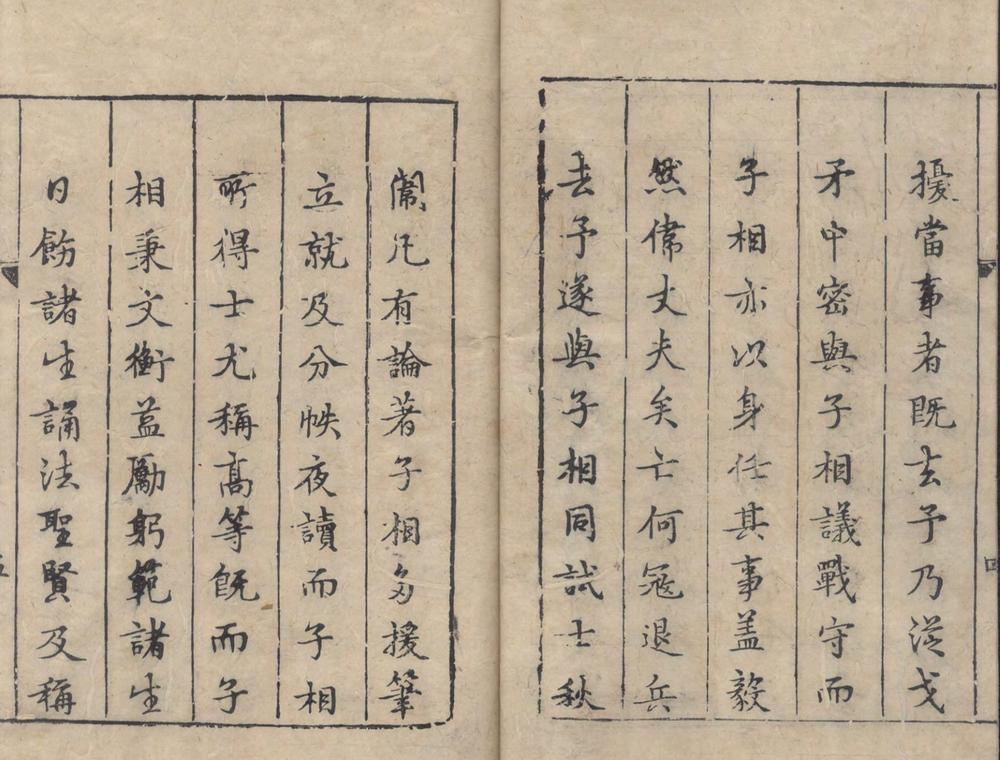 擾當事者既去予乃從戈
矛中密與子相議戰守而
子相亦以身任其事蓋毅
然偉丈夫矣亡何冦退兵
去予遂與子相同試士秋
闈凡有論著子相多援筆
立就及分帙夜讀而子相
所得士尤稱髙等旣而子
相秉文衡益勵躬範諸生
日飭諸生誦法聖賢及稱